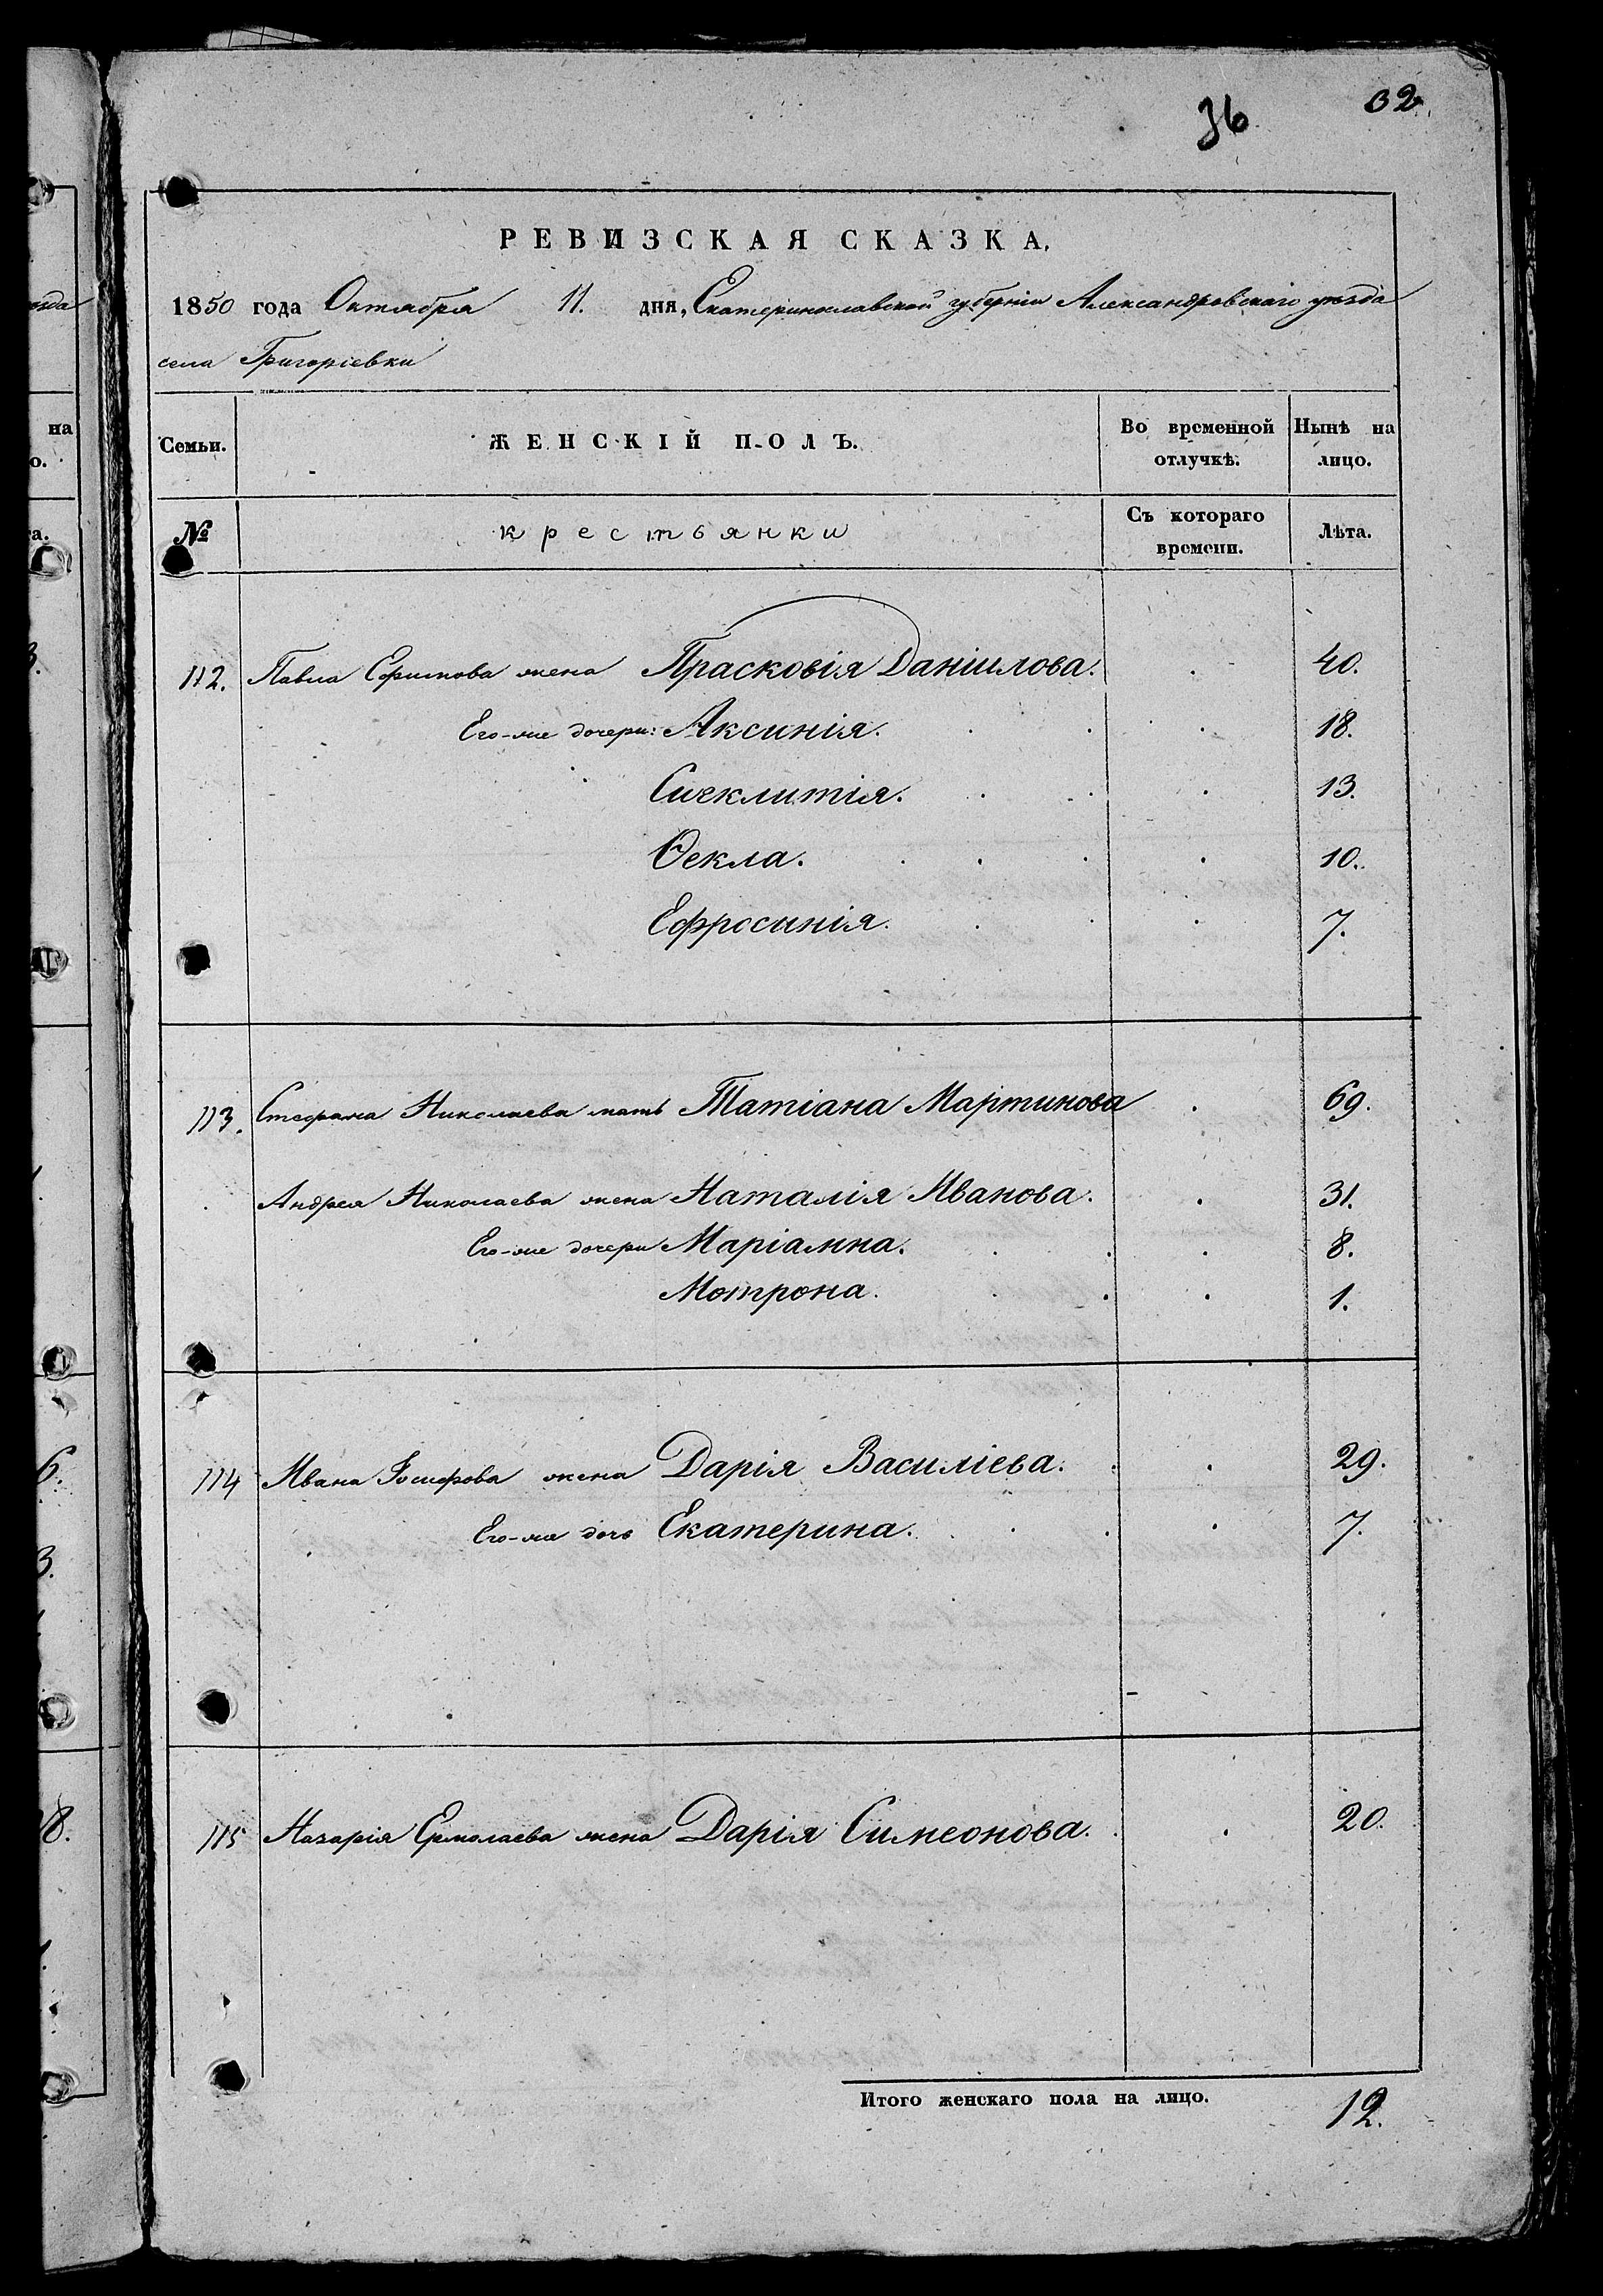 36 32
РЕВИЗСКАЯ СКАЗКА,
1850 года Октября 11. дня, Екатеринославской губерніи Александровскаго уѣзда
села Григоріевки
Семьи. ЖЕНСКІЙ ПОЛЪ. Во временной отлучкѣ. Нынѣ на лицо.
№ крестьянки Съ котораго времени. Лѣта.
112. Павла Ефимова жена Прасковія Даніилова. 40.
Его-же дочери: Аксинія. 18.
Сиклитія. 13.
Ѳекла. 10.
Ефросинія. 7.
113. Стефана Николаева мать Татіана Мартинова 69.
Андрея Николаева жена Наталія Иванова. 31.
Его-же дочери Маріамна. 8.
Мотрона. 1.
114 Ивана Іосифова жена Дарія Василіева. 29.
Его-же дочь Екатерина. 7.
115 Назарія Ермолаева жена Дарія Симеонова. 20.
Итого женскаго пола на лицо. 12.